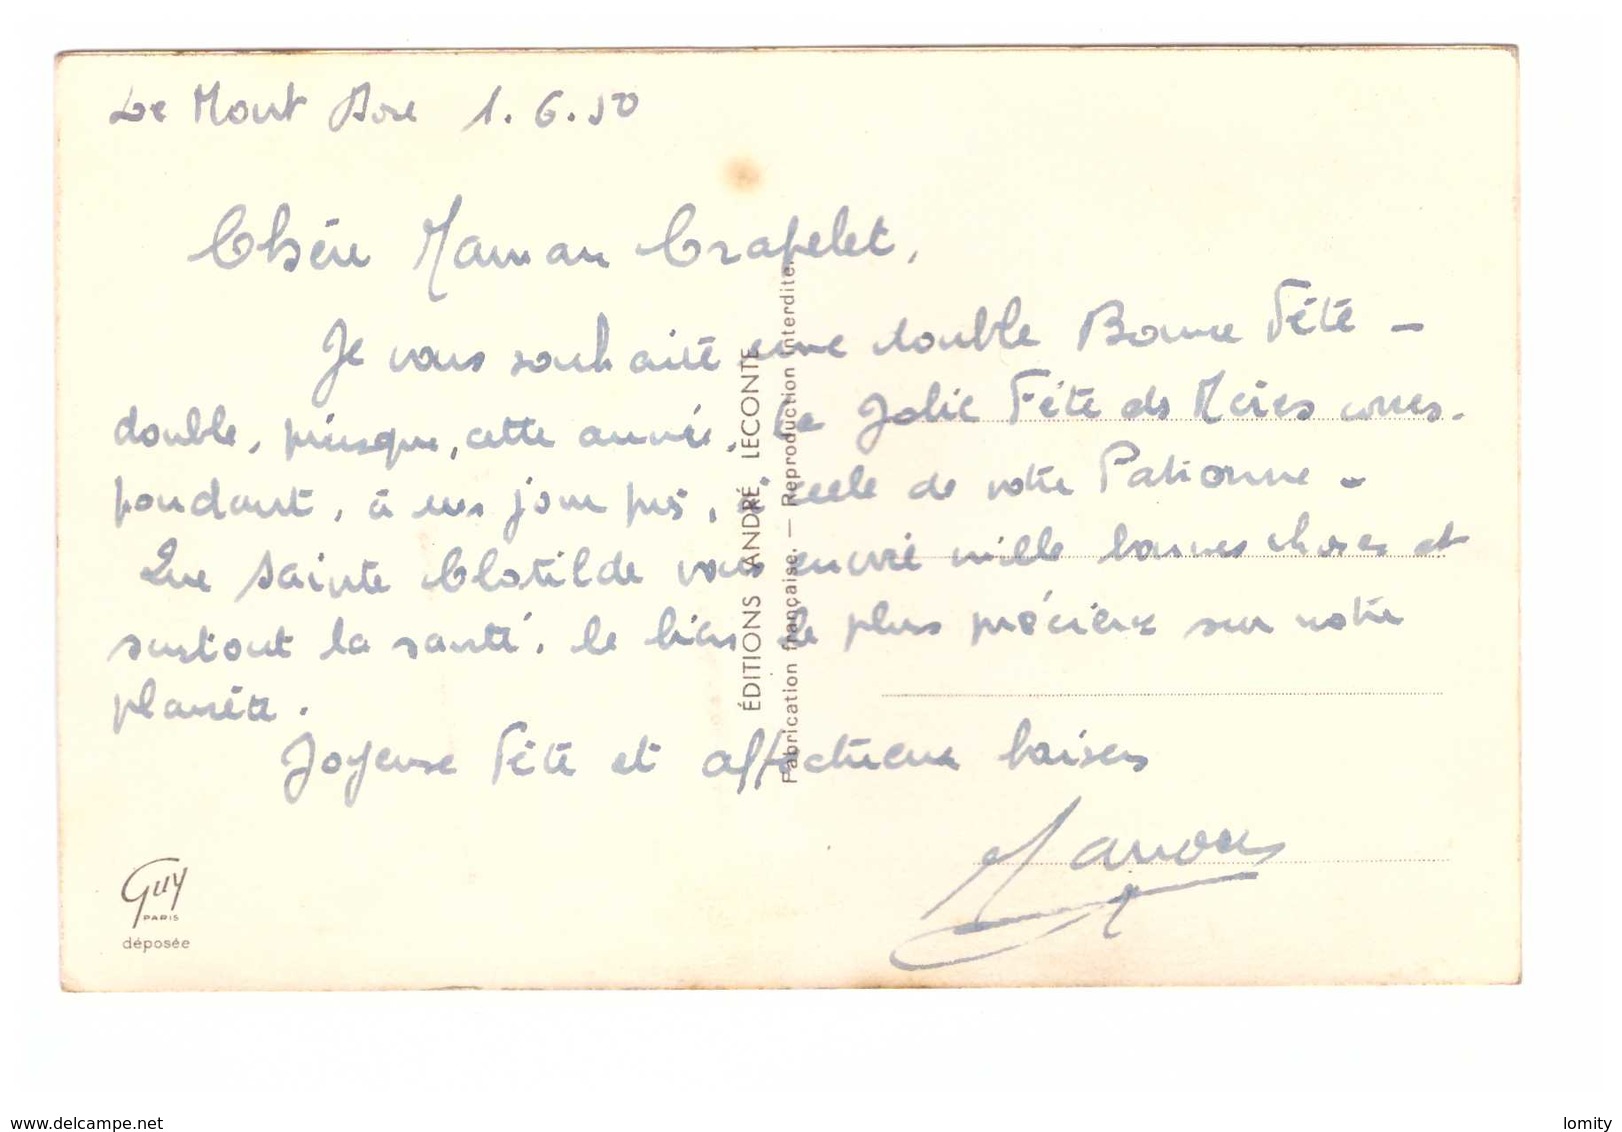 Le Mont Dore 1.6.50
Chère Maman Crapelet,
Je vous souhaite une double Bonne Fête -
double, puisque, cette année, la Jolie Fête des Mères corres-
pondant, à un jour près, à celle de votre Patronne -
Que Sainte Clotilde vous envoie mille bonnes choses et
surtout la santé, le bien le plus précieux sur notre
planète.
Joyeuse Fête et affectueux baisers
Manou
ÉDITIONS ANDRÉ LECONTE
Fabrication française. — Reproduction interdite.
Guy
PARIS
déposée
www.delcampe.net
lomity